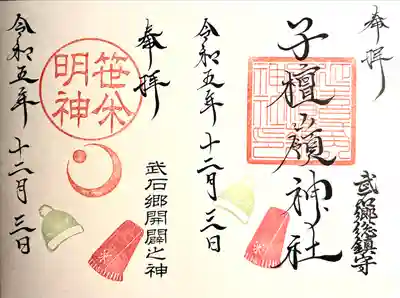 奉拝
武石郷総鎮守
子檀嶺神社
令和五年十二月三日
奉拝
武石郷開闢之神
笹
明神
令和五年十二月三日